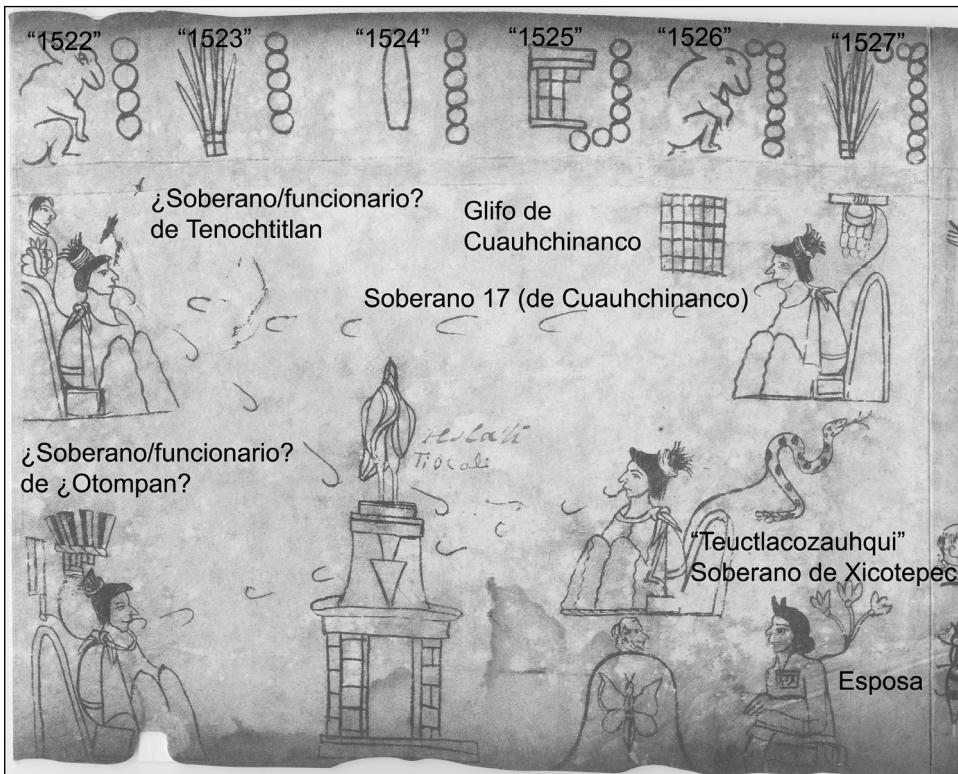 “1522”
“1523”
“1524”
“1525”
“1526”
“1527”
¿Soberano/funcionario?
de Tenochtitlan
Glifo de
Cuauhchinanco
Soberano 17 (de Cuauhchinanco)
¿Soberano/funcionario?
de ¿Otompan?
“Teuctlacozauhqui”
Soberano de Xicotepec
Esposa